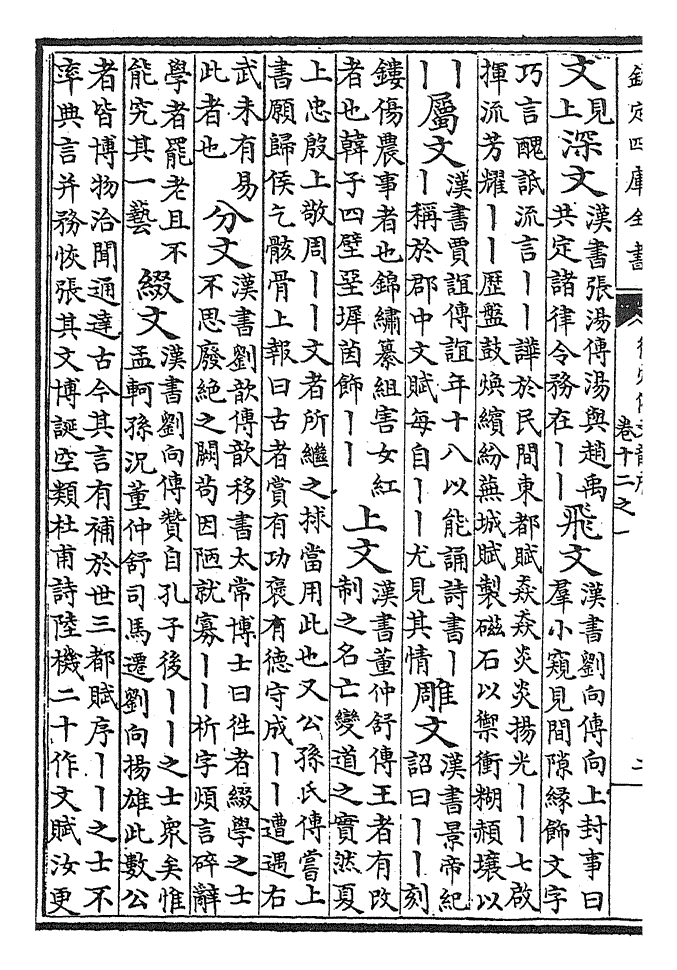 欽定四庫全書
卷十二之一
二
文見上深文漢書張湯傳湯與趙禹共定諸律令務在丨丨飛文漢書劉向傳向上封事曰羣小窺見間隙緣飾文字
巧言醜詆流言丨丨譁於民間東都賦焱焱炎炎揚光丨丨七啟揮流芳耀丨丨歷盤鼓煥繽紛蕪城賦製磁石以禦衝糊赬壤以
丨丨屬文漢書賈誼傳誼年十八以能誦詩書丨丨稱於郡中文賦每自丨丨尤見其情雕文漢書景帝紀詔曰丨丨刻
鏤傷農事者也錦繡纂組害女紅者也韓子四壁堊墀茵飾丨丨上文漢書董仲舒傳王者有改制之名亡變道之實然夏
上忠殷上敬周丨丨文者所繼之捄當用此也又公孫氏傳嘗上書願歸侯乞骸骨上報曰古者賞有功褒有德守成丨丨遭遇右
武未有易此者也分文漢書劉歆傳歆移書太常博士曰徃者綴學之士不思廢絶之闕茍因陋就寡丨丨析字煩言碎辭
學者罷老且不能究其一藝綴文漢書劉向傳贊自孔子後丨丨之士衆矣惟孟軻孫況董仲舒司馬遷劉向揚雄此數公
者皆博物洽聞通達古今其言有補於世三都賦序丨丨之士不率典言并務恢張其文博誕空類杜甫詩陸機二十作文賦汝更